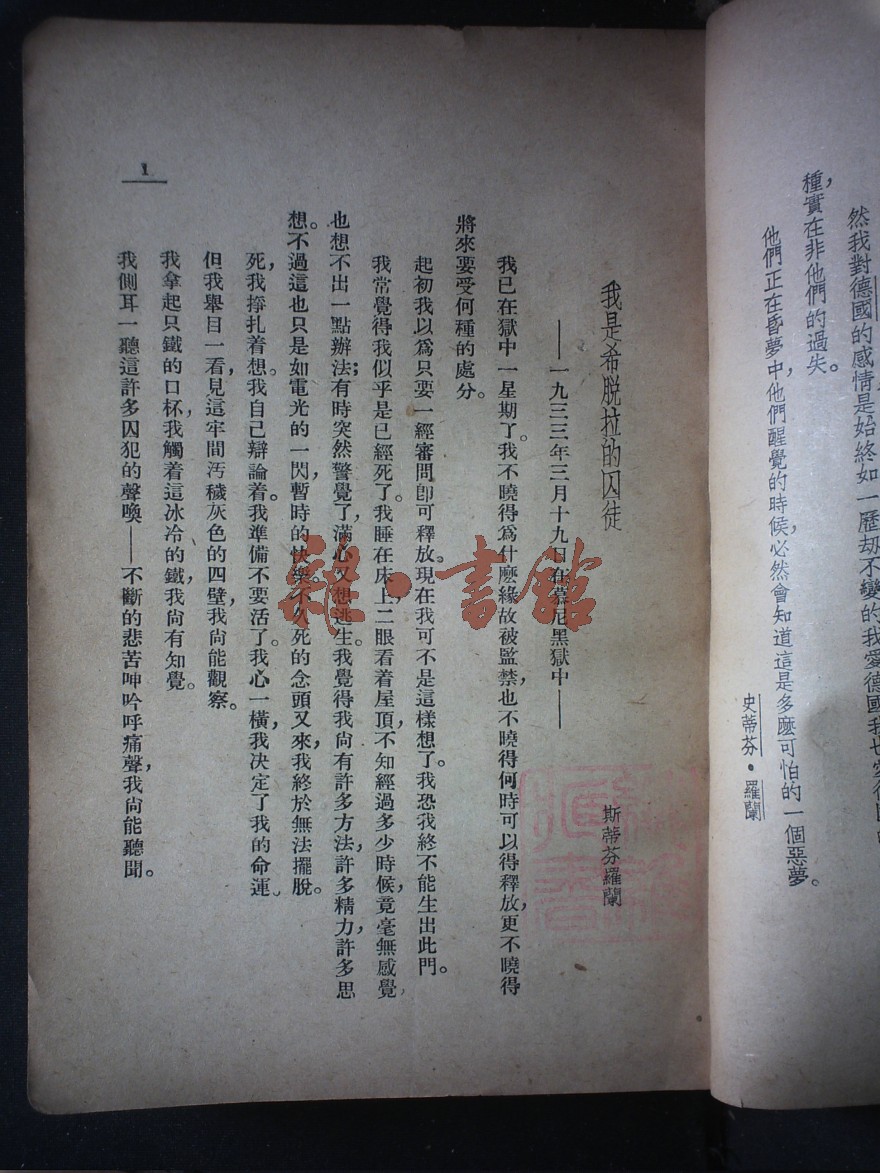 然我對德國的感情是始終如一歷劫不變的我愛德國我也
種,實在非他們的過失。
他們正在昏夢中,他們醒覺的時候,必然會知道這是多麼可怕的一個惡夢。
史蒂芬·羅蘭
我是希脱拉的囚徒
斯蒂芬羅蘭
——一九三三年三月十九日在慕尼黑獄中——
我已在獄中一星期了。我不曉得爲什麽緣故被監禁,也不曉得何時可以得釋放,更不曉得
將來要受何種的處分。
起初我以爲只要一經審問卽可釋放。現在我可不是這樣想了。我恐我終不能生出此門。
我常覺得我似乎是已經死了。我睡在床上,二眼看着屋頂,不知經過多少時候,竟毫無感覺,
也想不出一點辦法;有時突然警覺了,滿心又想逃生。我覺得我尙有許多方法,許多精力,許多思
想。不過這也只是如電光的一閃,暫時的快樂。不久死的念頭又來,我終於無法擺脫。
死,我掙扎着想。我自己辯論着。我準備不要活了。我心一橫,我決定了我的命運。
但我舉目一看,見這牢間汚穢灰色的四壁,我尙能觀察。
我拿起只鐵的口杯,我觸着這冰冷的鐵,我尙有知覺。
我側耳一聽這許多囚犯的聲喚——不斷的悲苦呻吟呼痛聲,我尙能聽聞。
1
雜·書館